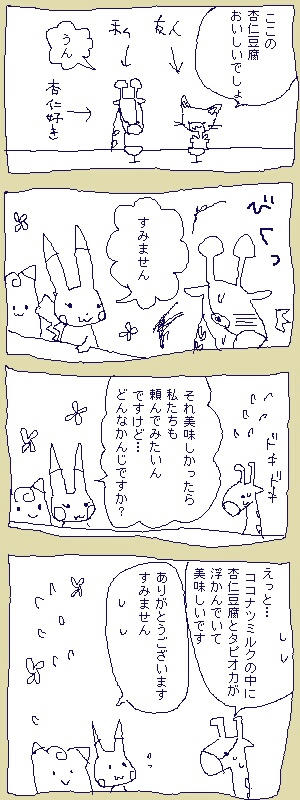 ここの
杏仁豆腐
おいしいでしょ
友人
私
うん
杏仁好き
びくっ
すみません
ドキドキ
それ美味しかったら
私たちも
頼んでみたいん
ですけど…
どんなかんじですか?
えっと…
ココナツミルクの中に
杏仁豆腐とタピオカが
浮かんでいて
美味しいです
ありがとうございます
すみません